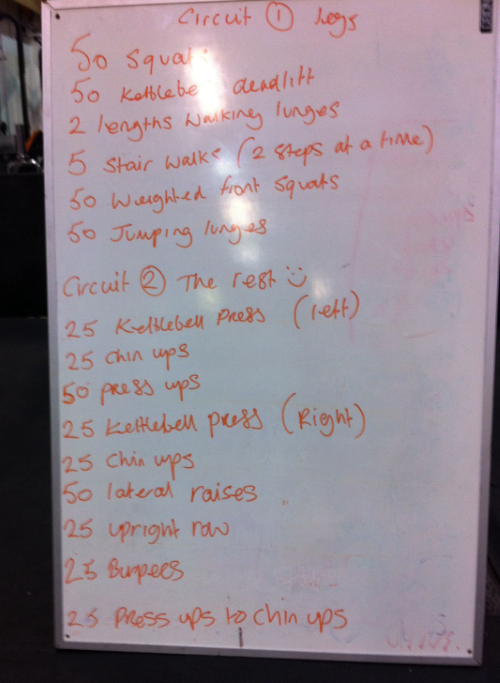 Circuit ① Legs
50 Squats
50 Kettlebell deadlift
2 lengths walking lunges
5 Stair walks (2 Steps at a time)
50 Weighted front squats
50 Jumping lunges
Circuit ② The rest :)
25 Kettlebell Press (left)
25 chin ups
50 press ups
25 Kettlebell press (Right)
25 Chin ups
50 lateral raises
25 upright row
25 Burpees
25 Press ups to chin ups